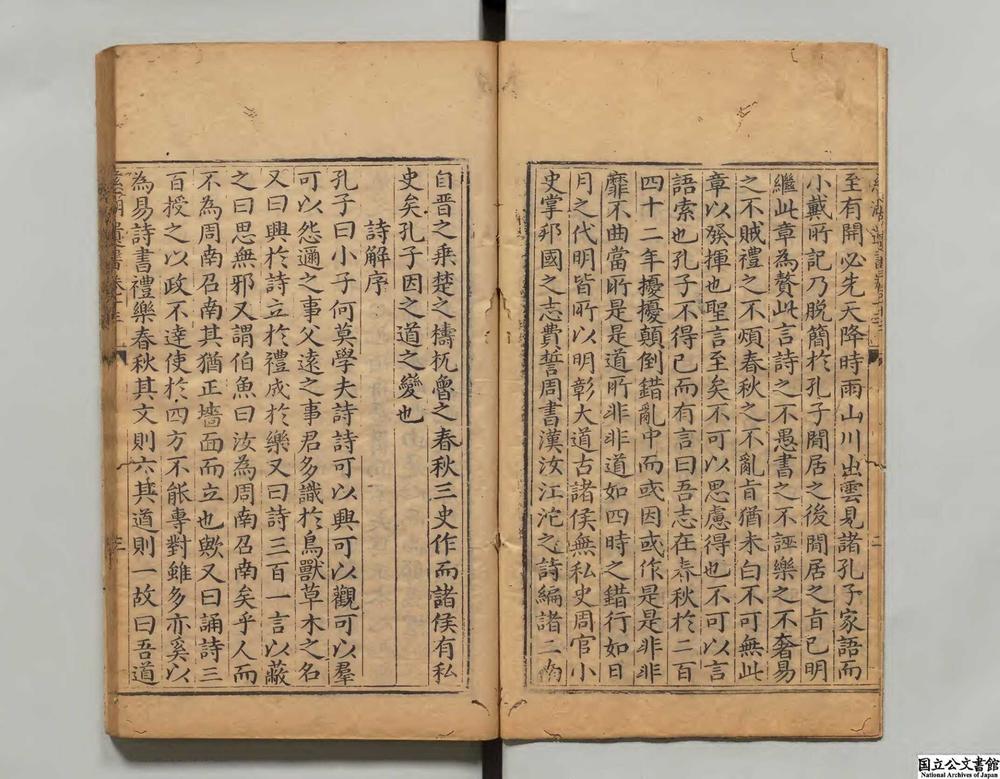 至有開必先天降時雨山川出雲見諸孔子家語而
小戴所記乃脫簡於孔子閒居之後閒居之旨已明
繼此章為贅此言詩之不愚書之不誣樂之不奢易
之不賊禮之不煩春秋之不亂旨猶未白不可無此
章以發揮也聖言至矣不可以思慮得也不可以言
語索也孔子不得已而有言曰吾志在春秋於二百
四十二年擾擾顛倒錯亂中而或因或作是是非非
靡不曲當所是是道所非非道如四時之錯行如日
月之代明皆所以明彰大道古諸侯無私史周官小
史掌邦國之志費誓周書漢汝江沱之詩編諸二南
自晋之乗楚之檮杌魯之春秋三史作而諸侯有私
史矣孔子因之道之變也
詩解序
孔子曰小子何莫學夫詩詩可以興可以觀可以羣
可以怨邇之事父遠之事君多識於鳥獸草木之名
又曰興於詩立於禮成於樂又曰詩三百一言以蔽
之曰思無邪又謂伯魚曰汝為周南召南矣乎人而
不為周南召南其猶正墻面而立也歟又曰誦詩三
百授之以政不達使於四方不能專對雖多亦奚以
為易詩書禮樂春秋其文則六其道則一故曰吾道
慈湖遺書卷十三
二
国立公文書館
National Archives of Japan